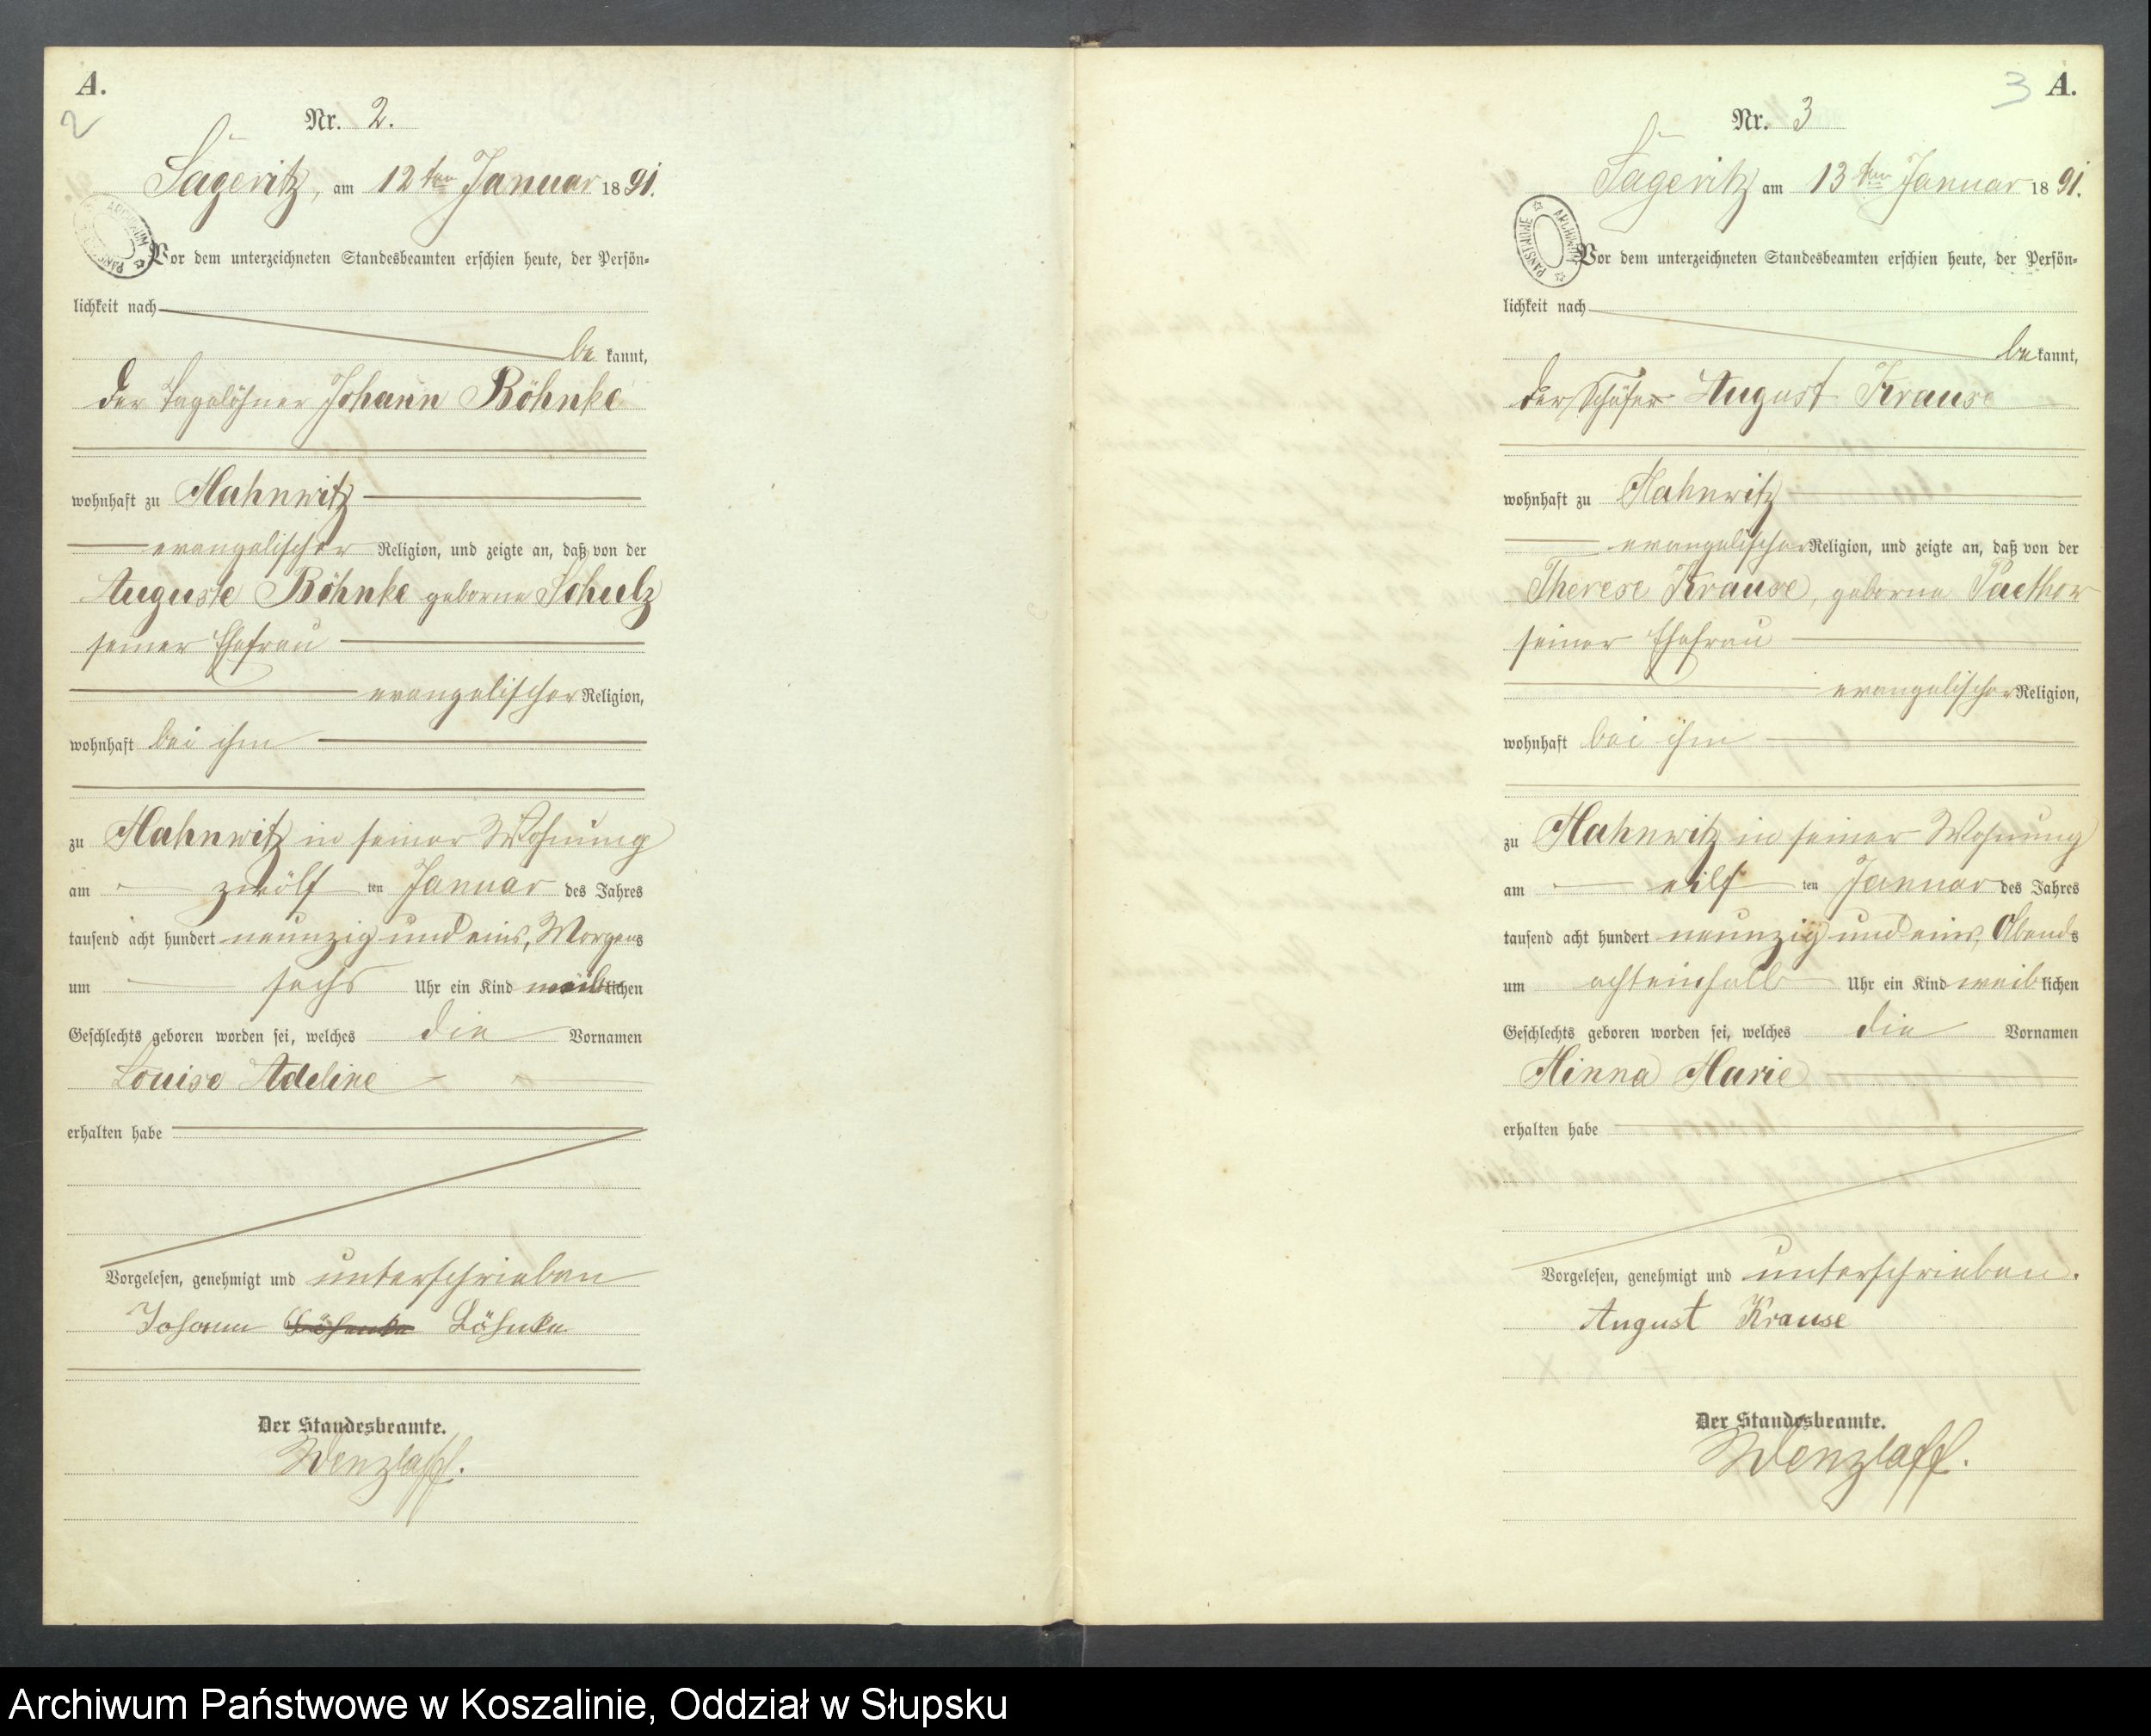 A.
2
Nr. 2.
Sageritz, am 12ten Januar 1891.
Vor dem unterzeichneten Standesbeamten erschien heute, der Persön-
lichkeit nach
bekannt,
der Tagelöhner Johann Böhnke
wohnhaft zu Mahnwitz
evangelischer Religion, und zeigte an, daß von der
Auguste Böhnke geborne Schulz
seiner Ehefrau
evangelischer Religion,
wohnhaft bei ihm
zu Mahnwitz in seiner Wohnung
am zwölf ten Januar des Jahres
tausend acht hundert neunzig und eins, Morgens
um sechs Uhr ein Kind weiblichen
Geschlechts geboren worden sei, welches die Vornamen
Louise Adeline
erhalten habe
Vorgelesen, genehmigt und unterschrieben
Johann Böhnke
Der Standesbeamte.
Wenzlaff.
3 A.
Nr. 3
Sageritz am 13ten Januar 1891.
ARCHIWUM PAŃSTWOWE
Vor dem unterzeichneten Standesbeamten erschien heute, der Persön-
lichkeit nach
bekannt,
der Schäfer August Krause
wohnhaft zu Mahnwitz
evangelischer Religion, und zeigte an, daß von der
Therese Krause, geborne Paethor
seiner Ehefrau
evangelischer Religion,
wohnhaft bei ihm
zu Mahnwitz in seiner Wohnung
am eilf ten Januar des Jahres
tausend acht hundert neunzig und eins, Abends
um achteinhalb Uhr ein Kind weiblichen
Geschlechts geboren worden sei, welches die Vornamen
Minna Marie
erhalten habe
Vorgelesen, genehmigt und unterschrieben.
August Krause
Der Standesbeamte.
Wenzlaff.
Archiwum Państwowe w Koszalinie, Oddział w Słupsku